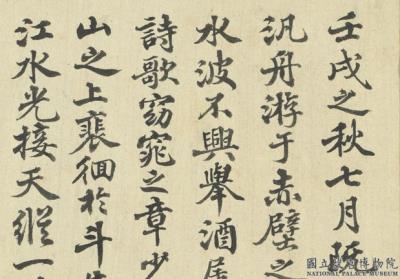 壬戌之秋七月
汎舟游于赤壁之
水波不興舉酒屬
詩歌窈窕之章少
山之上裵徊於斗
江水光接天縱一
國立故宮博物院
NATIONAL PALACE MUSEUM